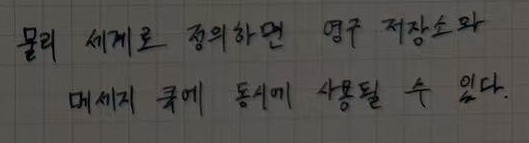 물리 세계로 정의하면 영구 저장소와
메세지 큐에 동시에 사용될 수 있다.